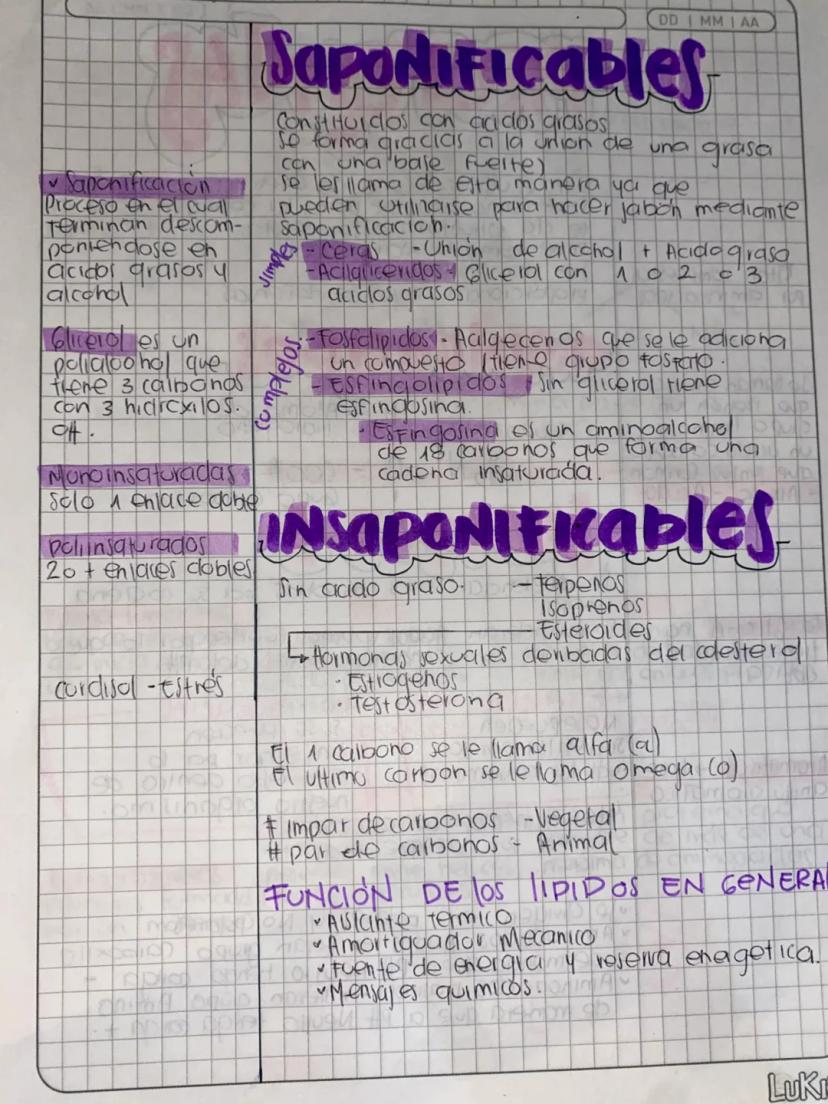 DD | MM | AA
SAPONIFICABLES
constituidos con acidos grasos
se forma gracias a la union de una grasa
con una base fuerte)
se les llama de esta manera ya que
pueden utilizarse para hacer jabón mediante
saponificacion.
simples
- Ceras - Unión de alcohol + Acido graso
- Acilgliceridos - Glicerol con 1 o 2 o 3
acidos grasos
complejos
- Fosfolipidos - que se le adiciona
un compuesto (tiene grupo fosfato.
- Esfingolipidos Sin glicerol tiene
esfingosina.
· Esfingosina es un aminoalcohol
de 18 carbonos que forma una
cadena insaturada.
✓ Saponificación
Proceso en el cual
terminan descom-
poniendose en
acidos grasos y
alcohol
Glicerol es un
polialcohol que
tiene 3 carbonos
con 3 hidroxilos.
OH.
Monoinsaturadas
solo 1 enlace doble
poliinsaturados
2 o + enlaces dobles
cordisol - Estrés
INSAPONIFICABLES
Sin acido graso. - Terpenos
Isoprenos
Esteroides
Hormonas sexuales deribadas del colesterol
· Estrogenos
· Testosterona
El 1 carbono se le llama alfa (a)
El ultimo carbon se le llama omega (o)
# impar de carbonos - Vegetal
# par de carbonos - Animal
FUNCIÓN DE LOS LIPIDOS EN GENERAL
✓ Aislante termico
✓ Amortiguador Mecanico
✓ Fuente de energia y reserva enegetica.
✓ Mensajes quimicos.